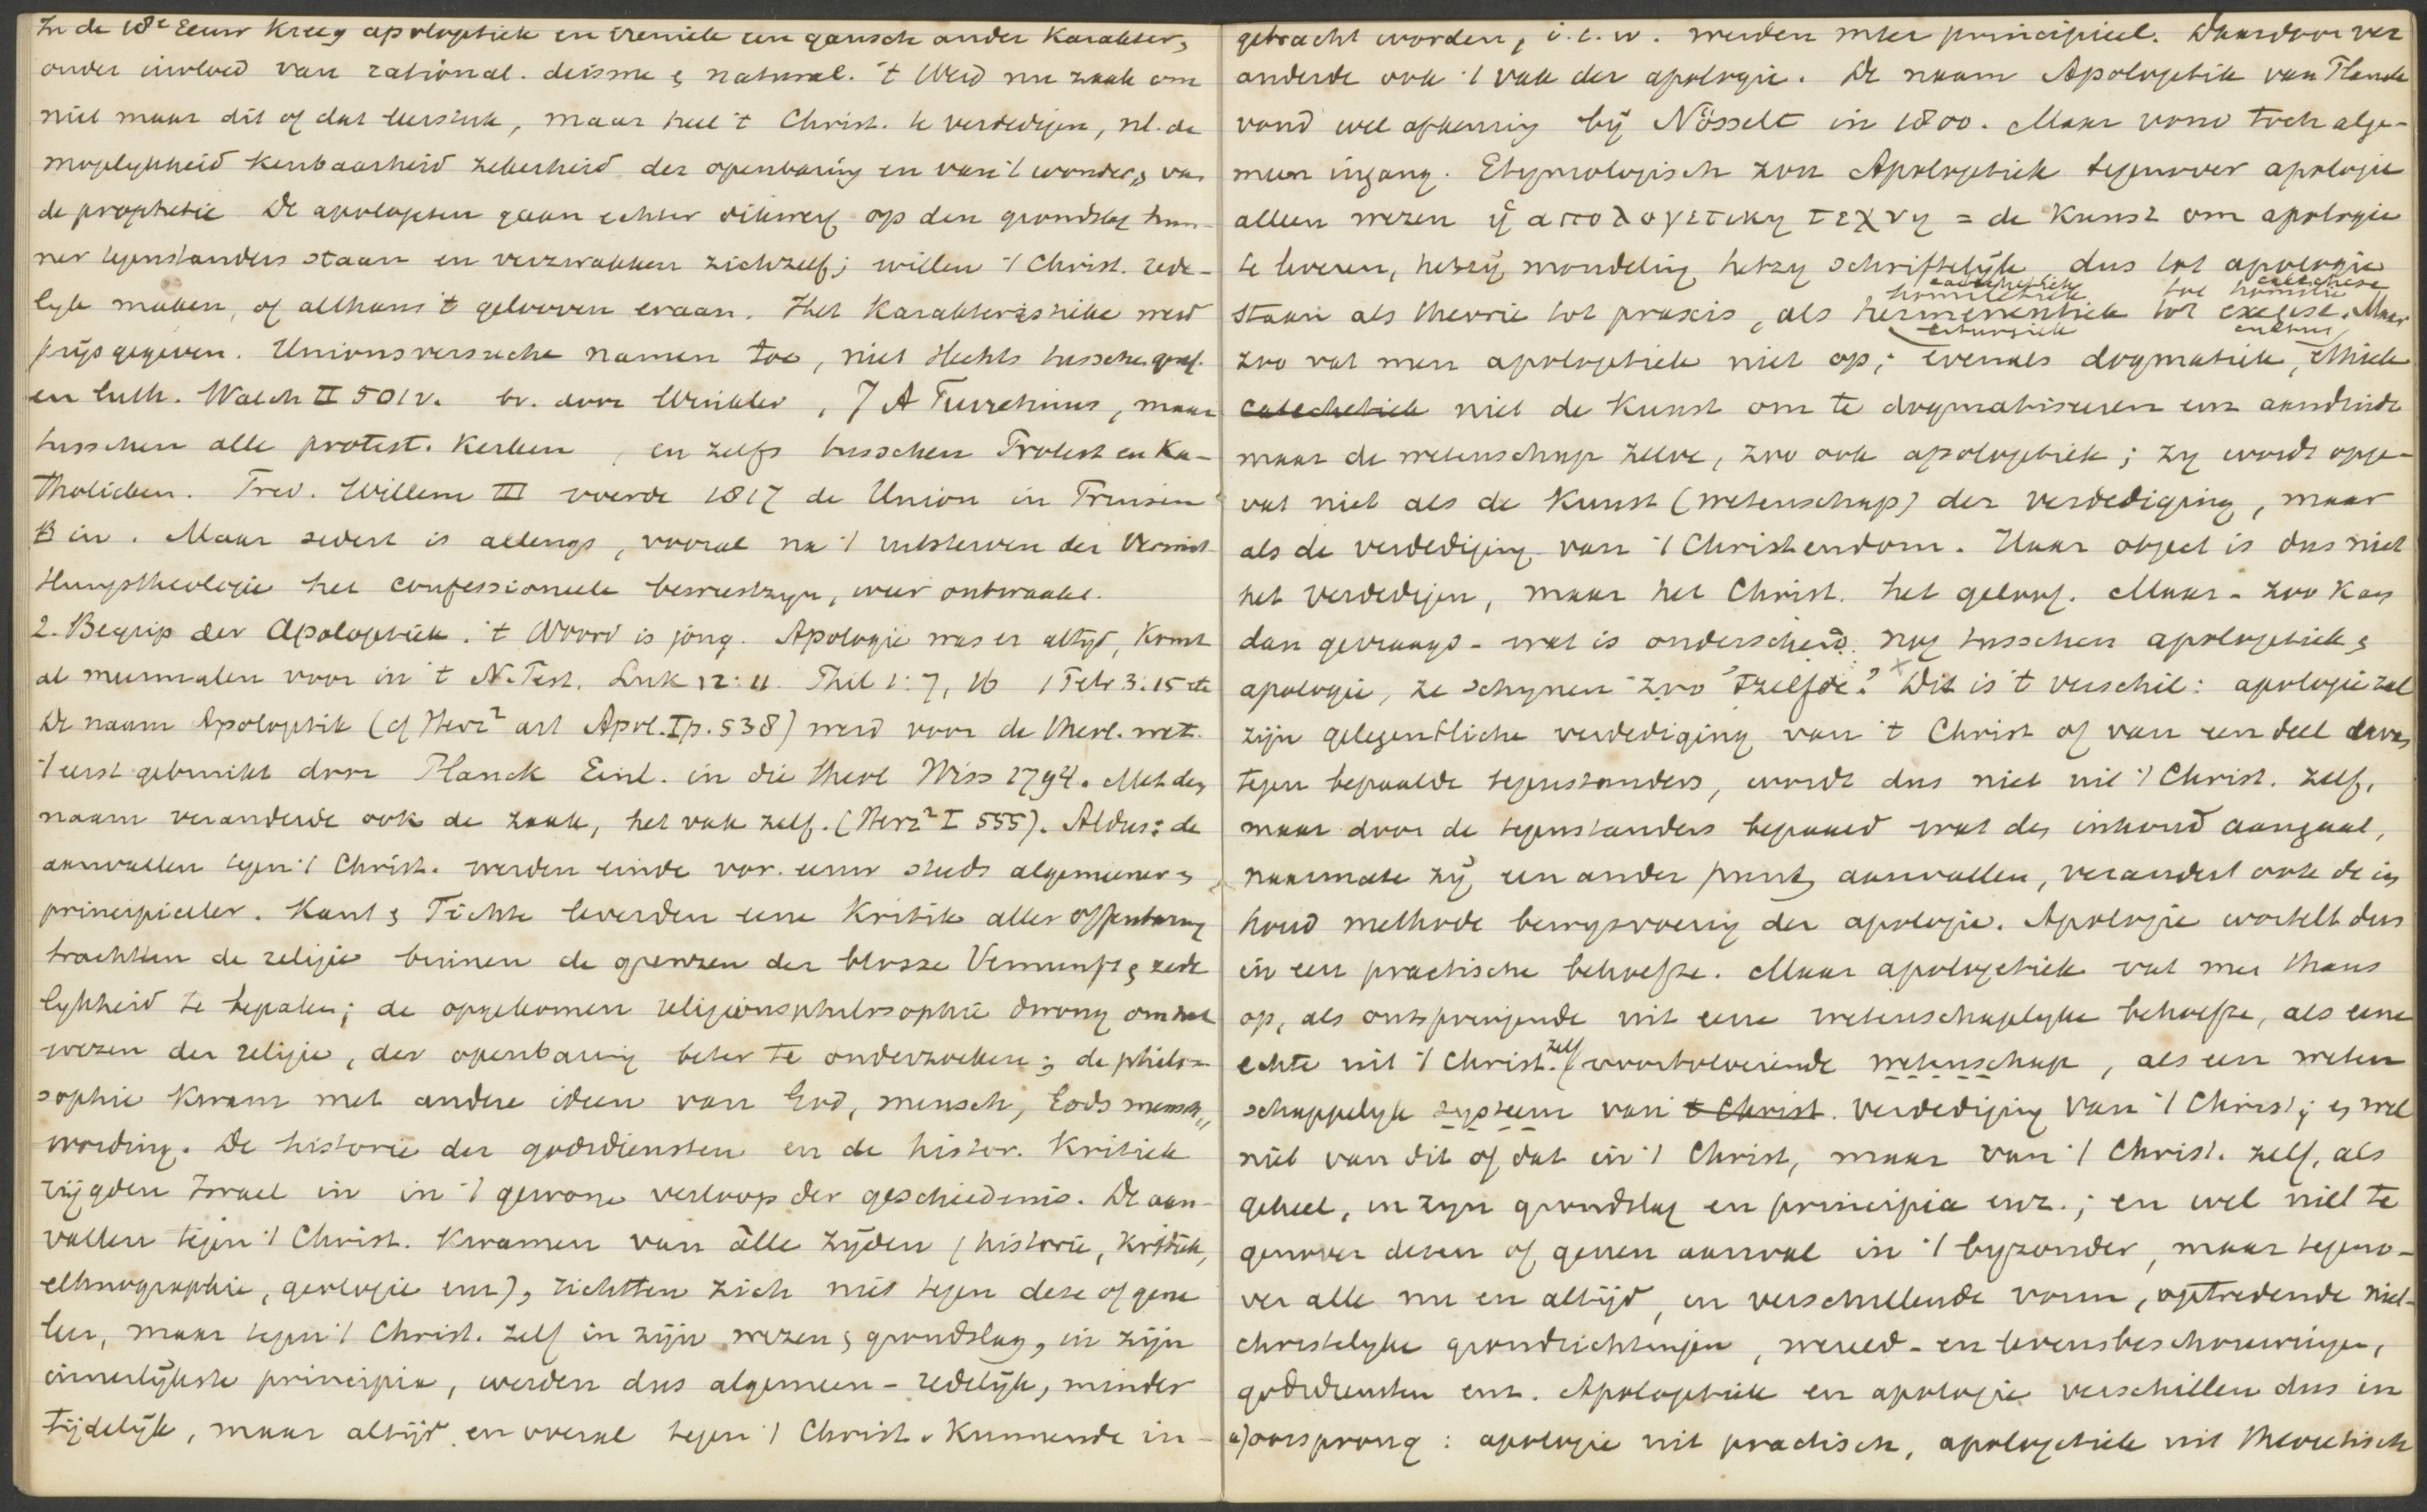 In de 18e Eeuw kreeg apologetiek en ireniek een gansch ander karakter,
onder invloed van rational. deisme & natural. 't Werd nu zaak om
niet maar dit of dat leerstuk, maar heel 't Christ. te verdedigen, nl. de
mogelykheid kenbaarheid zekerheid der openbaring en van 't wonder, van
de prophetie De apologeten gaan echter dikwerf op den grondslag hun-
ner tegenstanders staan en verzwakken zichzelf; willen 't Christ. rede-
lyk maken, of althans 't gelooven eraan. Het karakteristieke werd
prijsgegeven. Unionsversuche namen toe, niet slechts tusschen geref.
en luth. Walch II 501v. bv. door Winkler, J A Turretinus, maar
tusschen alle protest. kerken, en zelfs tusschen Protest en Ka-
tholieken. Fred. Willem III voerde 1817 de Union in Pruisen
in. Maar sedert is allengs, vooral na 't uitsterven der Vermitt-
lungstheologie het confessioneele bewustzyn, weer ontwaakt.
2. Begrip der Apologetiek. 't Woord is jong. Apologie was er altyd, komt
al meermalen voor in 't N. Test. Luk 12:11. Phil 1:7, 16 1 Petr 3:15 etc
De naam Apologetik (cf Herz² art Apol. I p. 538) werd voor de theol. wet.
't eerst gebruikt door Planck Einl. in die theol Wiss 1794. Met den
naam veranderde ook de zaak, het vak zelf. (Herz² I 555). Aldus: de
aanvallen tegen 't Christ. werden einde vor. eeuw steeds algemeener &
principieeler. Kant & Fichte leverden eene Kritik aller Offenbarung
trachtten de religie binnen de grenzen der blosze Vernunft & zede
lykheid te bepalen; de opgekomen religionsphilosophie drong om het
wezen der religie, der openbaring beter te onderzoeken; de philo-
sophie kwam met andere ideen van God, mensch, Gods mensch-
wording. De historie der godsdiensten en de histor. Kritiek
rijgden Israel in in 't gewone verloop der geschiedenis. De aan-
vallen tegen 't Christ. kwamen van alle zijden (historie, kritiek,
ethnographie, geologie enz), richtten zich niet tegen deze of gene
leer, maar tegen 't Christ. zelf in zijn wezen & grondslag, in zijn
innerlijkste principia, werden dus algemeen-redelijk, minder
tijdelijk, maar altijd en overal tegen 't Christ. kunnende in-
gebracht worden, i.e.w. werden meer principieel. Daardoor ver
anderde ook 't vak der apologie. De naam Apologetik van Planck
vond wel afkeuring bij Nösselt in 1800. Maar vond toch alge-
meen ingang. Etymologisch zou Apologetiek tegenover apologie
alleen wezen ἡ απολογετικη τεχνη = de kunst om apologie
te leveren, hetzij mondeling hetzy schriftelijk, dus tot apologie
catechetiek catechese
homiletiek tot homilie
staan als theorie tot praxis, als hermeneutiek tot exegese. Maar
liturgiek cultus
zoo vat men apologetiek niet op; evenals dogmatiek, ethiek
catechetiek niet de kunst om te dogmatiseeren enz aanduidt
maar de wetenschap zelve, zoo ook apologetiek; zy wordt opge-
vat niet als de kunst (wetenschap) der verdediging, maar
als de verdediging van 't Christendom. Haar object is dus niet
het verdedigen, maar het Christ. het geloof. Maar - zoo kan
dan gevraagd - wat is onderscheid nog tusschen apologetiek &
apologie, ze schynen zoo 'tzelfde? Dit is 't verschil: apologie zal
zijn gelegentliche verdediging van 't Christ of van een deel daarvan
tegen bepaalde tegenstanders, wordt dus niet uit 't Christ. zelf,
maar door de tegenstanders bepaald wat den inhoud aangaat,
naarmate zij een ander punt aanvallen, verandert ook de in
houd methode bewysvoering der apologie. Apologie wortelt dus
in een practische behoefte. Maar apologetiek vat men thans
op, als ontspringende uit eene wetenschaplyke behoefte, als eene
echte uit 't Christ. zelf voortvloeiende wetenschap, als een weten
schappelyk systeem van 't Christ. verdediging van 't Christ; en wel
niet van dit of dat in 't Christ, maar van 't Christ. zelf, als
geheel, in zyn grondslag en principia enz.; en wel niet te
genover dezen of genen aanval in 't byzonder, maar tegeno-
ver alle nu en altijd, in verschillende vorm, optredende niet-
christelyke grondrichtingen, wereld- en levensbeschouwingen,
godsdiensten enz. Apologetiek en apologie verschillen dus in
a) oorsprong: apologie uit practisch, apologetiek uit theoretisch